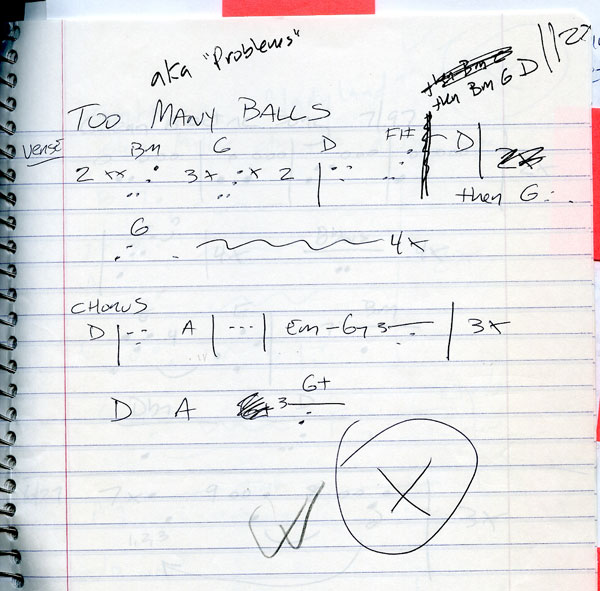 aka "Problems"
then Bm G D || 2x
TOO MANY BALLS
VERSE
Bm G D F#
2 xx 3x x 2 D
then G
G
4x
CHORUS
D A Em - G 3 3x
D A 3 G+
X